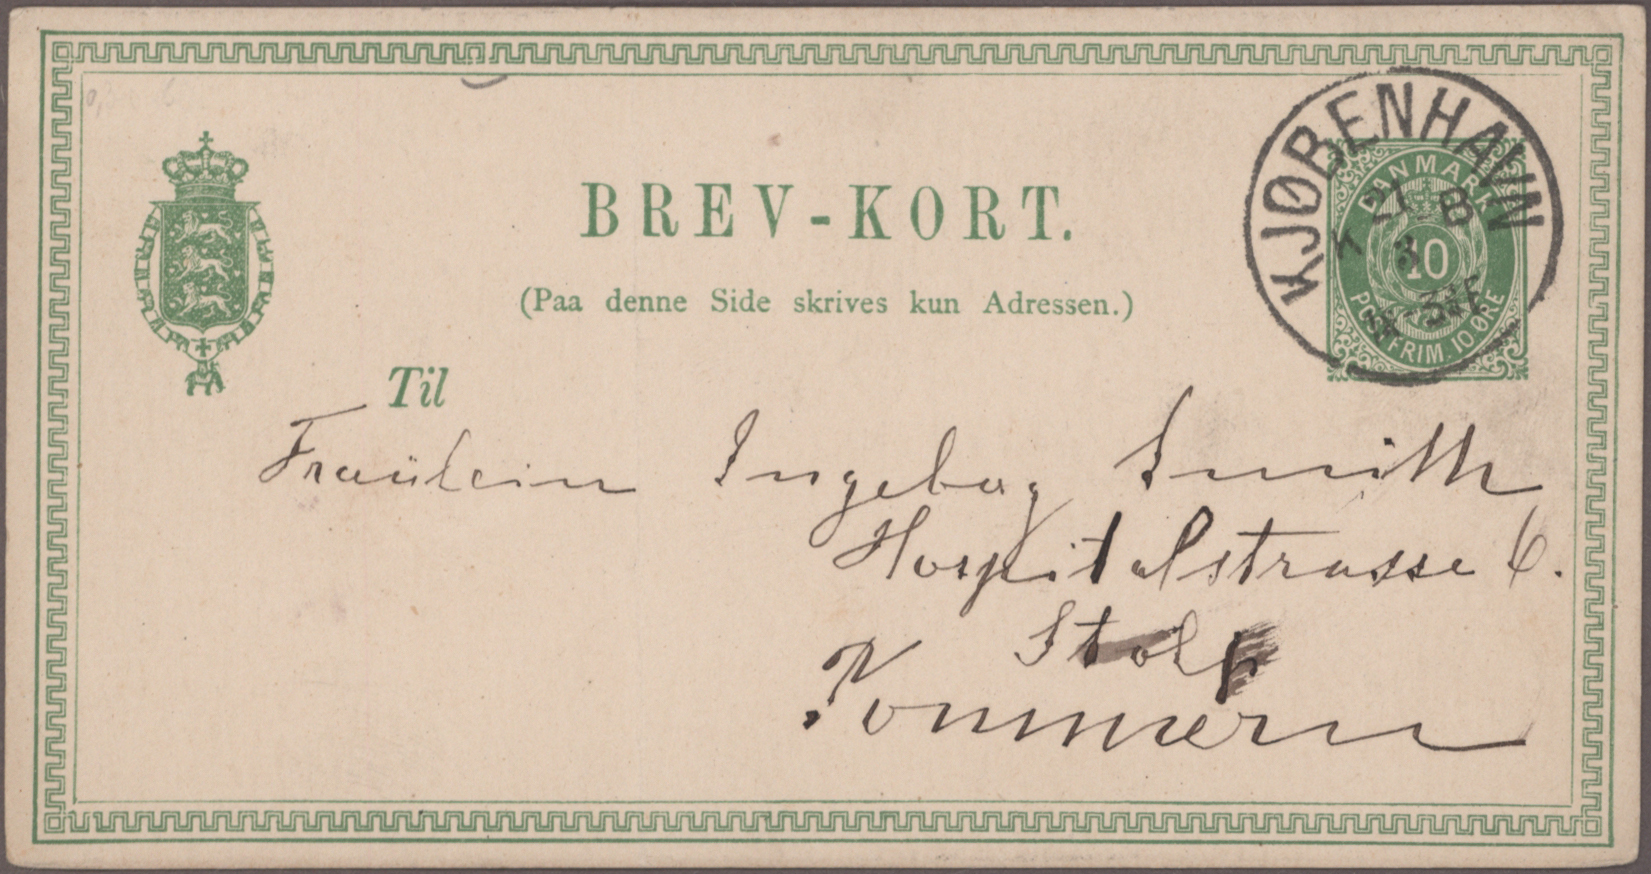 BREV-KORT.
(Paa denne Side skrives kun Adressen.)
KJØBENHAVN
21 B
K 3
DANMARK
10
POST FRIM. 10 ØRE
Til
Fraülein Ingeborg Smith
Hospitalstrasse 6.
Stolp
Pommern